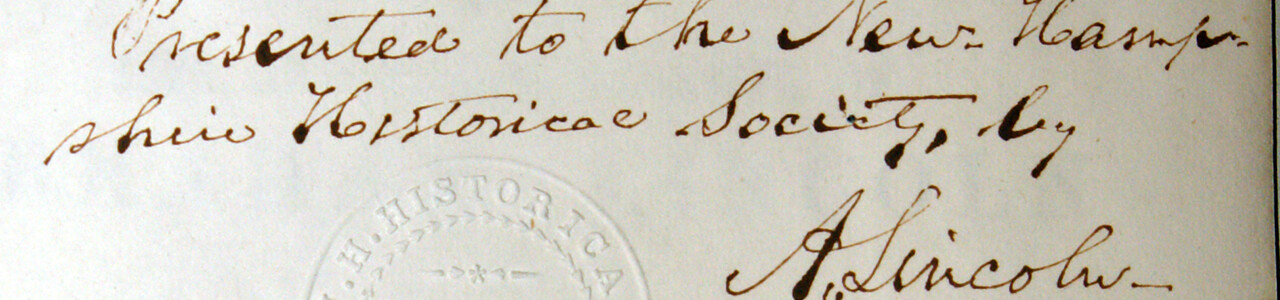 Presented to the New-Hamp-
shire Historical Society, by
H. HISTORICA
A. Lincoln